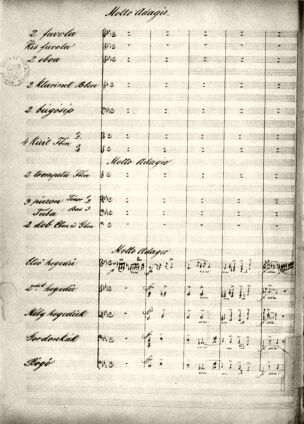 Molto Adagio.
2 fuvola
Kis fuvola
2 oboa
2 klarinet B ben
2 búgósip
4 kürt F ben
Molto Adagio
2 trombita
3 pizon Tenor 1/2
Bas 3
Tuba
2 dob
Molto Adagio
Első hegedű
2dik hegedű
Mély hegedűk
Gordonkák
Bőgő